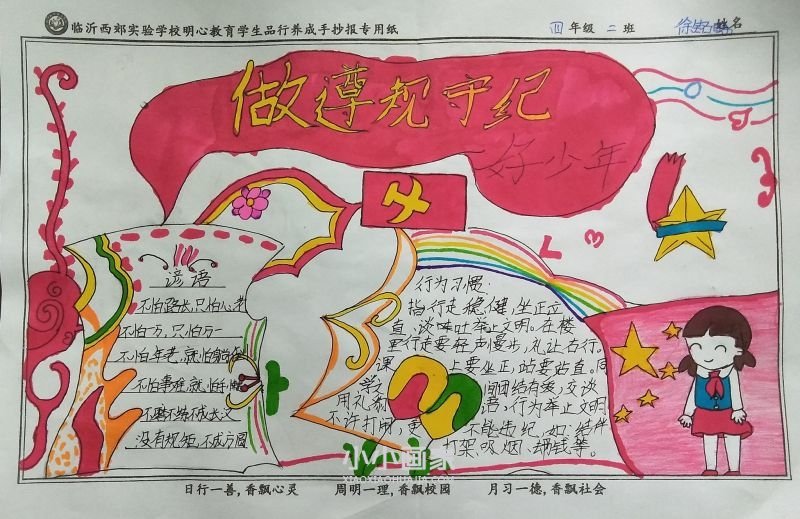 临沂西郊实验学校明心教育学生品行养成手抄报专用纸
四 年级 二 班 姓名
做遵规守纪
好少年
谚语
不怕路长,只怕心老
不怕一万,只怕万一
不怕年老,就怕躺倒
不怕事难,就怕手懒
不磨不炼,不成好汉
没有规矩,不成方圆
行为习惯:
指行走稳健,坐正立
直、谈吐举止文明。在楼
里行走要轻声慢步,礼让右行。
课上要坐正,站要站直。同
学间团结有爱,交谈
用礼貌语,行为举止文明
不许打闹,更不能违纪,如:结伴
打架、吸烟、劫钱等。
小小画家
XIAOXIAOHUAJIA.COM
日行一善,香飘心灵 周明一理,香飘校园 月习一德,香飘社会